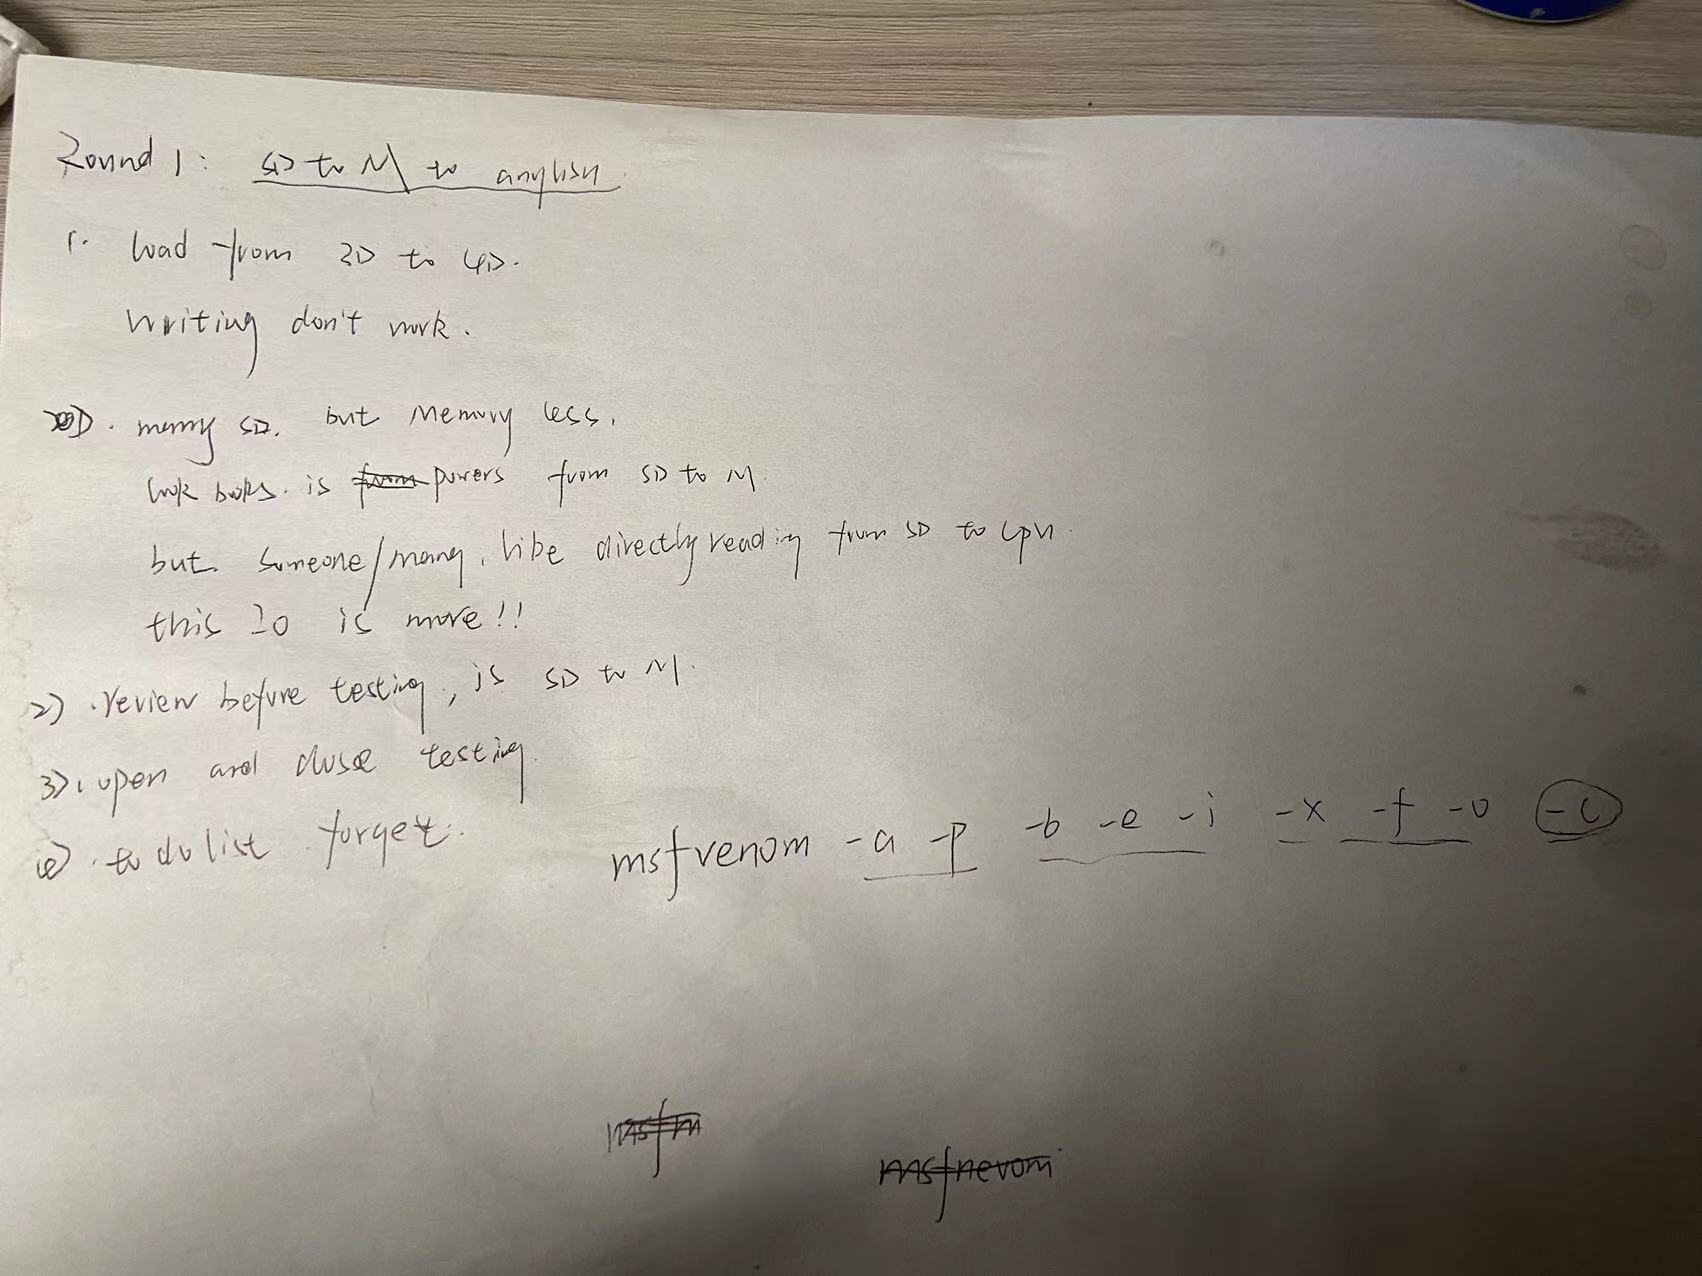 Round 1: SD to M to
1. load from 3D to 4D.
writing don't work.
many SD. but Memory less.
look books. is from powers from SD to M.
but. someone/many, like directly reading from SD to cpu.
this IO is more!!
2) . review before testing, is SD to M.
3). open and close testing.
. to do list forget.
msfvenom -a -p -b -e -i -x -f -o -c
msfm
msfnevom